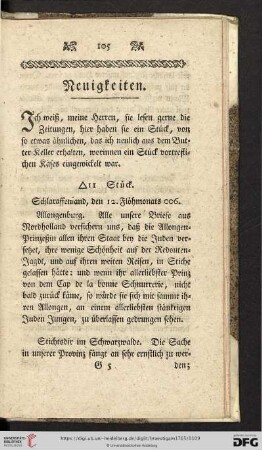 105
Neuigkeiten.
Ich weiß, meine Herren, sie lesen gerne die
Zeitungen, hier haben sie ein Stück, von
so etwas ähnlichen, das ich neulich aus dem But-
ter Keller erhalten, worinnen ein Stück vortrefli-
chen Käses eingewickelt war.
△11 Stück.
Schlaraffenland, den 12. Flöhmonats 006.
Allongenburg. Alle unsere Briefe aus
Nordholland versichern uns, daß die Allongen-
Prinzeßin allen ihren Staat bey die Juden ver-
setzet, ihre wenige Schönheit auf der Redouten-
Jagdt, und auf ihren weiten Reisen, in Stiche
gelassen hätte: und wenn ihr allerliebster Prinz
von dem Cap de la bonne Schnurrerie, nicht
bald zurück käme, so würde sie sich mit sammt ih-
ren Allongen, an einem allerliebsten stänkrigen
Juden Jungen, zu überlassen gedrungen sehen.
Stichrodis im Schwarzwalde. Die Sache
in unserer Provinz fängt an sehr ernstlich zu wer-
G 5
den;
http://digi.ub.uni-heidelberg.de/diglit/braendigam1765/0109
© Universitätsbibliothek Heidelberg
gefördert durch die
DFG